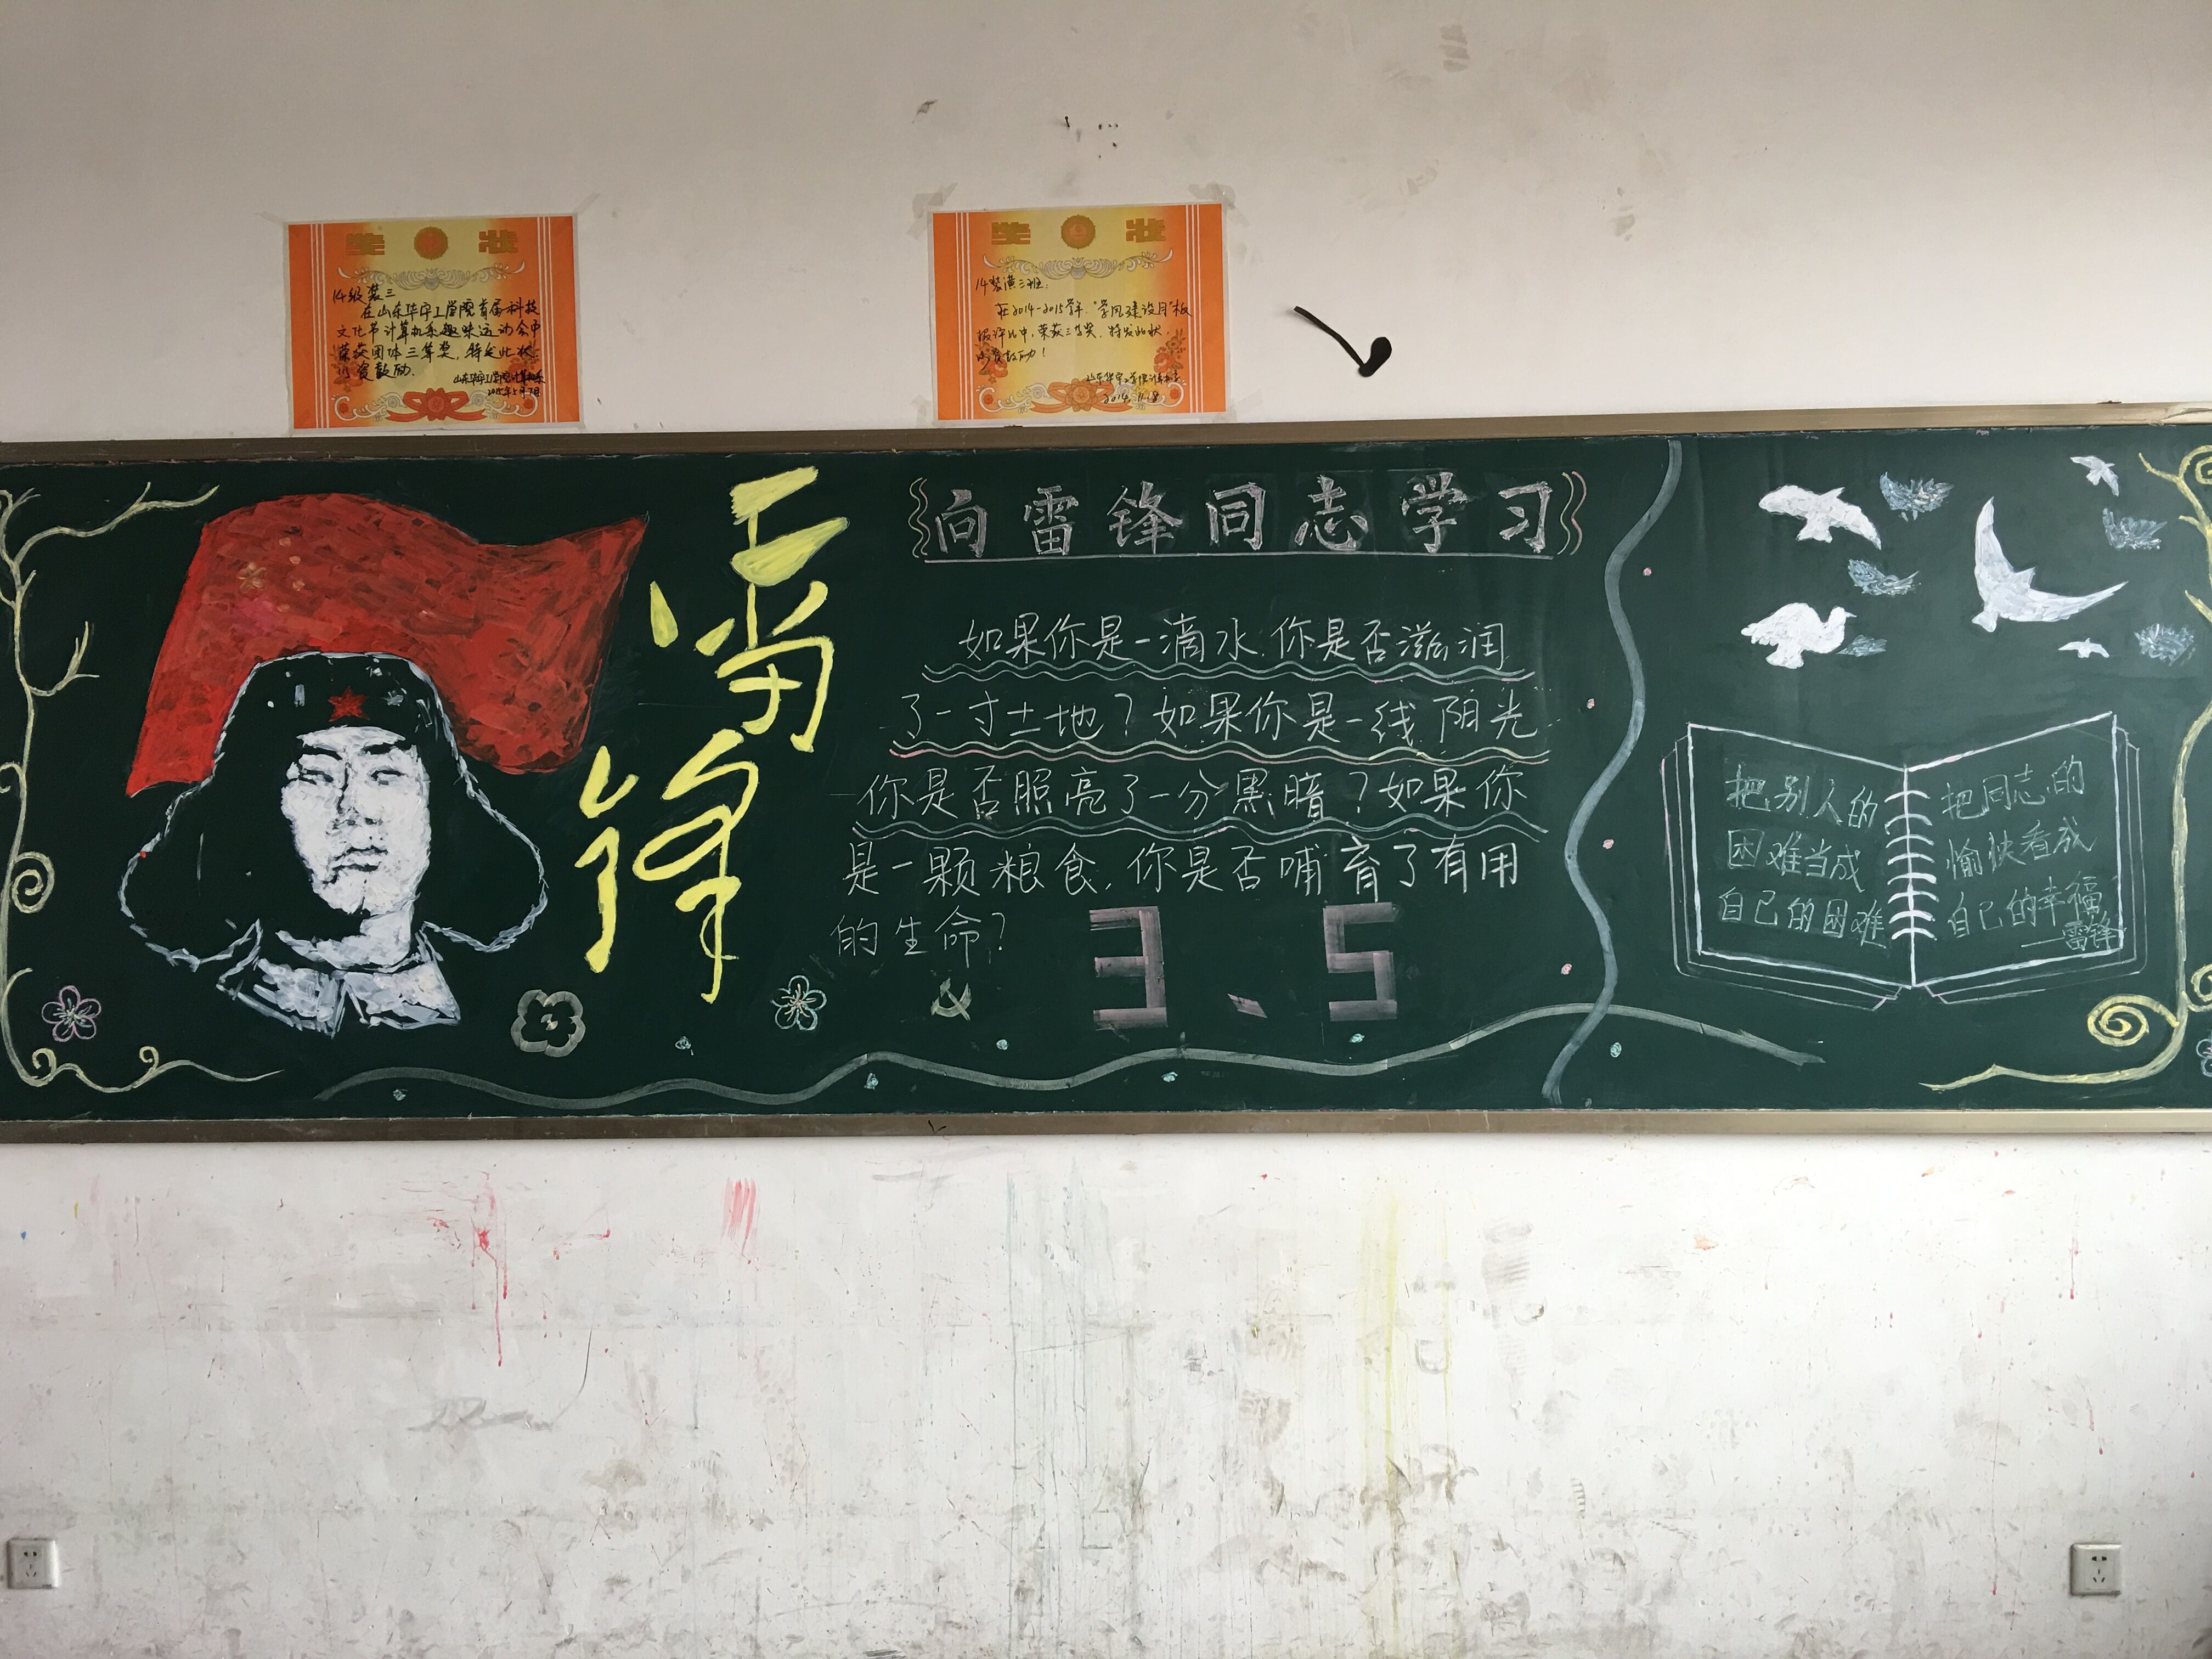 奖状
14级装三
在山东华宇工学院首届科技
文化节计算机系趣味运动会中
荣获团体三等奖,特发此状.
以资鼓励.
山东华宇工学院计算机系
2015年5月7日
奖状
14装潢三班:
在2014-2015学年"学风建设月"板
报评比中,荣获三等奖,特发此状.
以资鼓励!
山东华宇工学院计算机系
2014.11.28
雷
锋
向雷锋同志学习
如果你是一滴水.你是否滋润
了一寸土地?如果你是一线阳光
你是否照亮了一分黑暗?如果你
是一颗粮食.你是否哺育了有用
的生命?
3、5
把别人的
困难当成
自己的困难
把同志的
愉快看成
自己的幸福
——雷锋